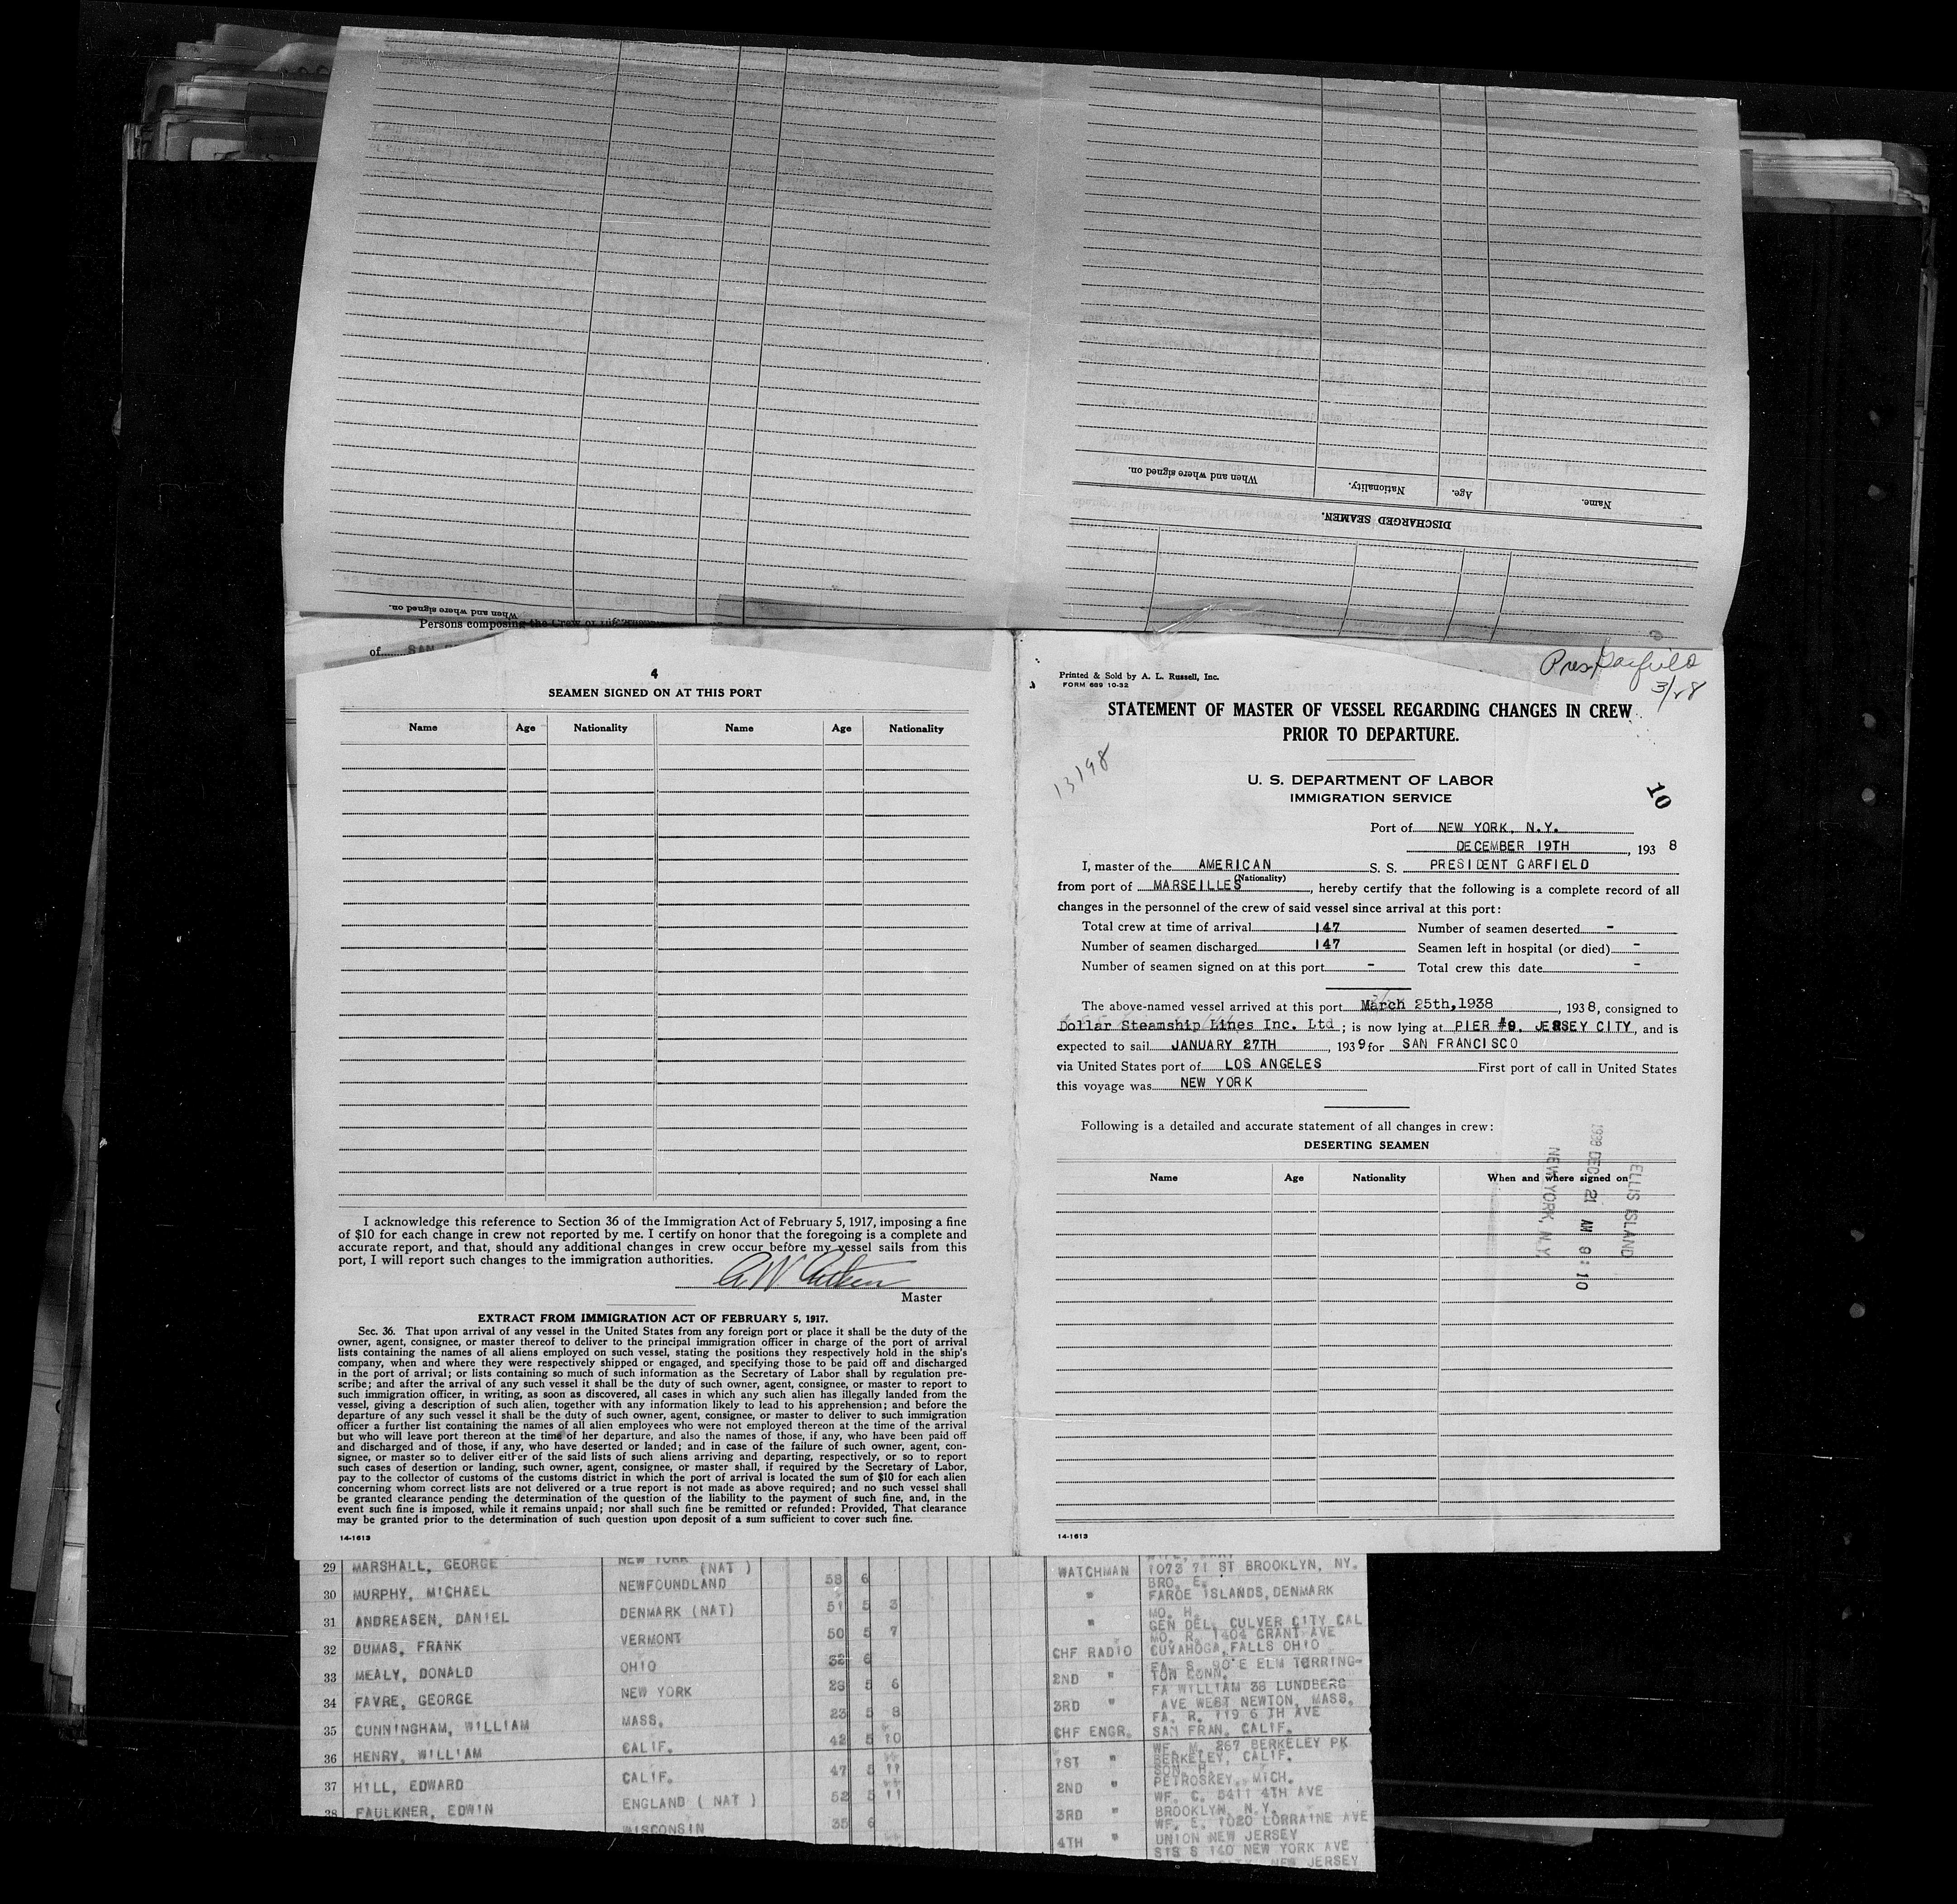 When and where signed on.
Nationality.
Age.
Name.
DISCHARGED SEAMEN.
When and where signed on.
Persons composing the Crew
of
4
SEAMEN SIGNED ON AT THIS PORT
Name Age Nationality Name Age Nationality
I acknowledge this reference to Section 36 of the Immigration Act of February 5, 1917, imposing a fine
of $10 for each change in crew not reported by me. I certify on honor that the foregoing is a complete and
accurate report, and that, should any additional changes in crew occur before my vessel sails from this
port, I will report such changes to the immigration authorities.
Master
EXTRACT FROM IMMIGRATION ACT OF FEBRUARY 5, 1917.
Sec. 36. That upon arrival of any vessel in the United States from any foreign port or place it shall be the duty of the
owner, agent, consignee, or master thereof to deliver to the principal immigration officer in charge of the port of arrival
lists containing the names of all aliens employed on such vessel, stating the positions they respectively hold in the ship's
company, when and where they were respectively shipped or engaged, and specifying those to be paid off and discharged
in the port of arrival; or lists containing so much of such information as the Secretary of Labor shall by regulation pre-
scribe; and after the arrival of any such vessel it shall be the duty of such owner, agent, consignee, or master to report to
such immigration officer, in writing, as soon as discovered, all cases in which any such alien has illegally landed from the
vessel, giving a description of such alien, together with any information likely to lead to his apprehension; and before the
departure of any such vessel it shall be the duty of such owner, agent, consignee, or master to deliver to such immigration
officer a further list containing the names of all alien employees who were not employed thereon at the time of the arrival
but who will leave port thereon at the time of her departure, and also the names of those, if any, who have been paid off
and discharged and of those, if any, who have deserted or landed; and in case of the failure of such owner, agent, con-
signee, or master so to deliver either of the said lists of such aliens arriving and departing, respectively, or so to report
such cases of desertion or landing, such owner, agent, consignee, or master shall, if required by the Secretary of Labor,
pay to the collector of customs of the customs district in which the port of arrival is located the sum of $10 for each alien
concerning whom correct lists are not delivered or a true report is not made as above required; and no such vessel shall
be granted clearance pending the determination of the question of the liability to the payment of such fine, and, in the
event such fine is imposed, while it remains unpaid; nor shall such fine be remitted or refunded: Provided, That clearance
may be granted prior to the determination of such question upon deposit of a sum sufficient to cover such fine.
14-1613
Pres Garfield
3/28
Printed & Sold by A. L. Russell, Inc.
FORM 689 10-32
STATEMENT OF MASTER OF VESSEL REGARDING CHANGES IN CREW
PRIOR TO DEPARTURE.
13198
U. S. DEPARTMENT OF LABOR
IMMIGRATION SERVICE
10
Port of NEW YORK, N.Y.
DECEMBER 19TH, 1938
I, master of the AMERICAN S. S. PRESIDENT GARFIELD
(Nationality)
from port of MARSEILLES, hereby certify that the following is a complete record of all
changes in the personnel of the crew of said vessel since arrival at this port:
Total crew at time of arrival 147 Number of seamen deserted -
Number of seamen discharged 147 Seamen left in hospital (or died) -
Number of seamen signed on at this port - Total crew this date -
The above-named vessel arrived at this port March 25th,1938, 1938, consigned to
Dollar Steamship Lines Inc. Ltd; is now lying at PIER #9, JERSEY CITY, and is
expected to sail JANUARY 27TH, 1939 for SAN FRANCISCO
via United States port of LOS ANGELES First port of call in United States
this voyage was NEW YORK
Following is a detailed and accurate statement of all changes in crew:
DESERTING SEAMEN
Name Age Nationality When and where signed on
ELLIS ISLAND
1938 DEC 21 AM 9:10
NEW YORK, N.Y.
14-1613
29 MARSHALL, GEORGE NEW YORK
(NAT) WATCHMAN 1073 71 ST BROOKLYN, NY.
30 MURPHY, MICHAEL NEWFOUNDLAND 58 6 BRO. E.
" FAROE ISLANDS, DENMARK
31 ANDREASEN, DANIEL DENMARK (NAT) 51 5 3 MO. H.
" GEN DEL. CULVER CITY CAL
32 DUMAS, FRANK VERMONT 50 5 7 MO. R. 1404 GRANT AVE
CHF RADIO CUYAHOGA, FALLS OHIO
33 MEALY, DONALD OHIO 32 6 FA. S. 90 E ELM TORRING-
2ND " TON CONN.
34 FAVRE, GEORGE NEW YORK 28 5 6 FA WILLIAM 38 LUNDBERG
3RD " AVE WEST NEWTON, MASS.
35 CUNNINGHAM, WILLIAM MASS. 23 5 8 FA. R. 119 6 TH AVE
CHF ENGR. SAN FRAN. CALIF.
36 HENRY, WILLIAM CALIF. 42 5 10 WF. M. 267 BERKELEY PK
1ST " BERKELEY, CALIF.
37 HILL, EDWARD CALIF. 47 5 11 SON, H.
2ND " PETROSKEY, MICH.
38 FAULKNER, EDWIN ENGLAND ( NAT ) 52 5 11 WF. C. 5411 4TH AVE
3RD " BROOKLYN, N.Y.
WISCONSIN 35 6 WF. E. 1020 LORRAINE AVE
4TH " UNION NEW JERSEY
SIS S 140 NEW YORK AVE
NEW JERSEY